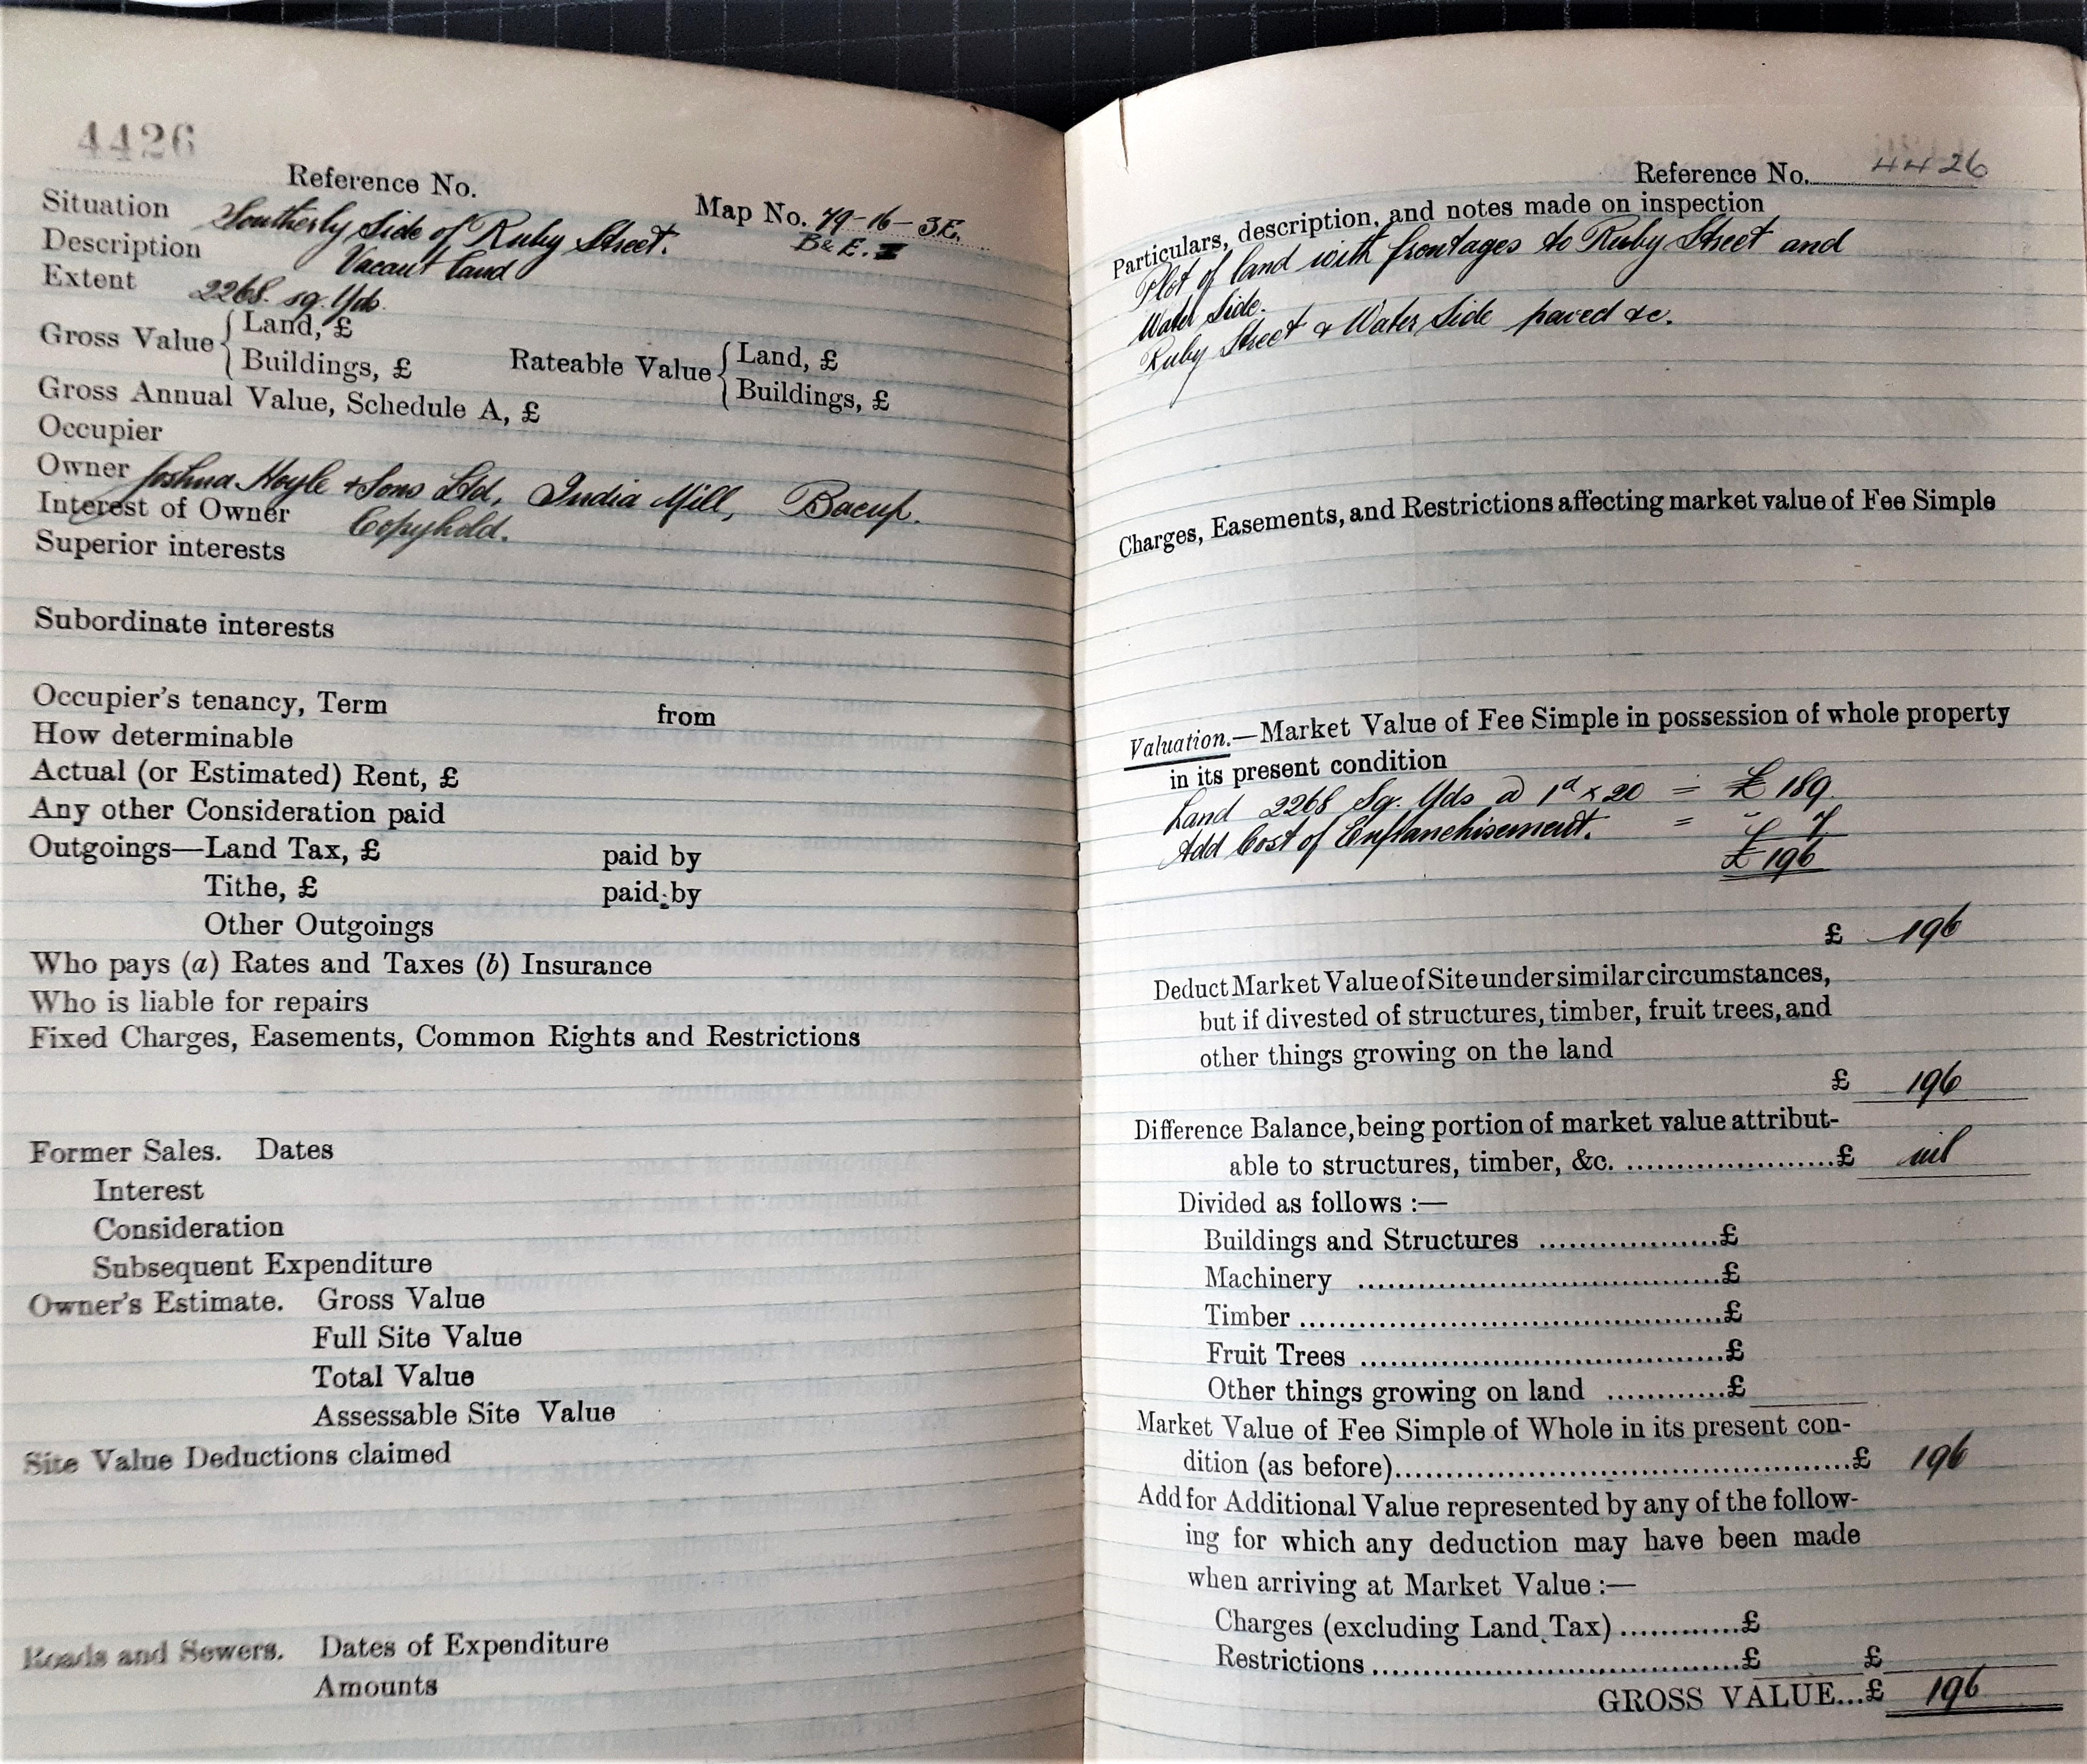 4426
Reference No.
Map No. 79-16-3E.
B & E.
Situation Southerly Side of Ruby Street.
Description Vacant land
Extent 2268 sq. Yds.
Gross Value { Land, £
Buildings, £
Rateable Value { Land, £
Buildings, £
Gross Annual Value, Schedule A, £
Occupier
Owner Joshua Hoyle & Sons Ltd, India Mill, Bacup.
Interest of Owner Copyhold.
Superior interests
Subordinate interests
Occupier's tenancy, Term from
How determinable
Actual (or Estimated) Rent, £
Any other Consideration paid
Outgoings—Land Tax, £ paid by
Tithe, £ paid by
Other Outgoings
Who pays (a) Rates and Taxes (b) Insurance
Who is liable for repairs
Fixed Charges, Easements, Common Rights and Restrictions
Former Sales. Dates
Interest
Consideration
Subsequent Expenditure
Owner's Estimate. Gross Value
Full Site Value
Total Value
Assessable Site Value
Site Value Deductions claimed
Roads and Sewers. Dates of Expenditure
Amounts
Reference No. 4426
Particulars, description, and notes made on inspection
Plot of land with frontages to Ruby Street and
Water Side.
Ruby Street & Water Side paved &c.
Charges, Easements, and Restrictions affecting market value of Fee Simple
Valuation.—Market Value of Fee Simple in possession of whole property
in its present condition
Land 2268 Sq. Yds @ 1d x 20 = £ 189
Add Cost of Enfranchisement. = £ 7
£ 196
£ 196
Deduct Market Value of Site under similar circumstances,
but if divested of structures, timber, fruit trees, and
other things growing on the land
£ 196
Difference Balance, being portion of market value attribut-
able to structures, timber, &c. ....................£ nil
Divided as follows :—
Buildings and Structures ..................£
Machinery ....................................£
Timber ..........................................£
Fruit Trees ....................................£
Other things growing on land ............£
Market Value of Fee Simple of Whole in its present con-
dition (as before)..............................................£ 196
Add for Additional Value represented by any of the follow-
ing for which any deduction may have been made
when arriving at Market Value :—
Charges (excluding Land Tax)............£
Restrictions ....................................£ £
GROSS VALUE...£ 196